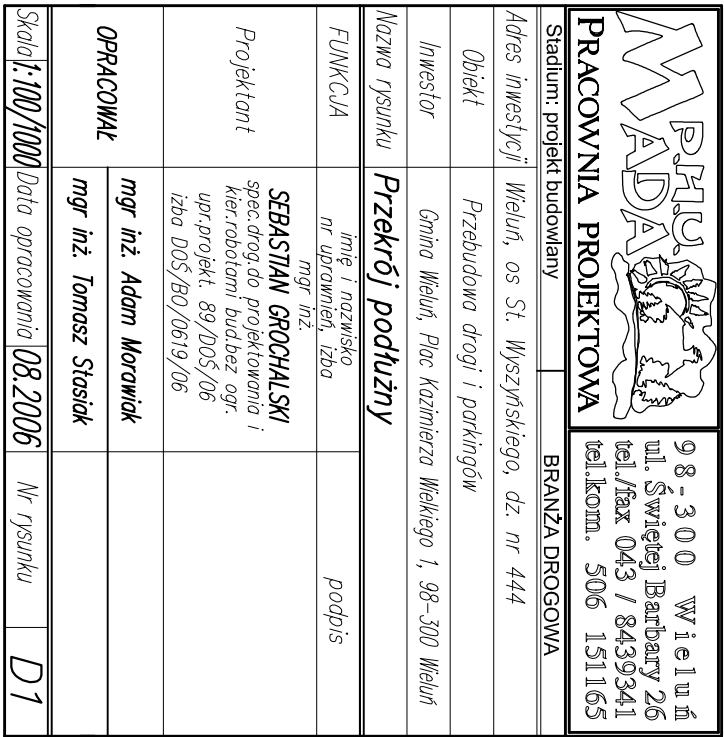 P.H.U.
MADA
PRACOWNIA PROJEKTOWA
98-300 Wieluń
ul. Świętej Barbary 26
tel./fax 043 / 8439341
tel.kom. 506 151165
Stadium: projekt budowlany BRANŻA DROGOWA
Adres inwestycji Wieluń, os St. Wyszyńskiego, dz. nr 444
Obiekt Przebudowa drogi i parkingów
Inwestor Gmina Wieluń, Plac Kazimierza Wielkiego 1, 98-300 Wieluń
Nazwa rysunku Przekrój podłużny
FUNKCJA imię i nazwisko podpis
nr uprawnień, izba
Projektant mgr inż.
SEBASTIAN GROCHALSKI
spec.drog.do projektowania i
kier.robotami bud.bez ogr.
upr.projekt. 89/DOŚ/06
izba DOŚ/BO/0619/06
OPRACOWAŁ mgr inż. Adam Morawiak
mgr inż. Tomasz Stasiak
Skala 1:100/1000 Data opracowania 08.2006 Nr rysunku D1